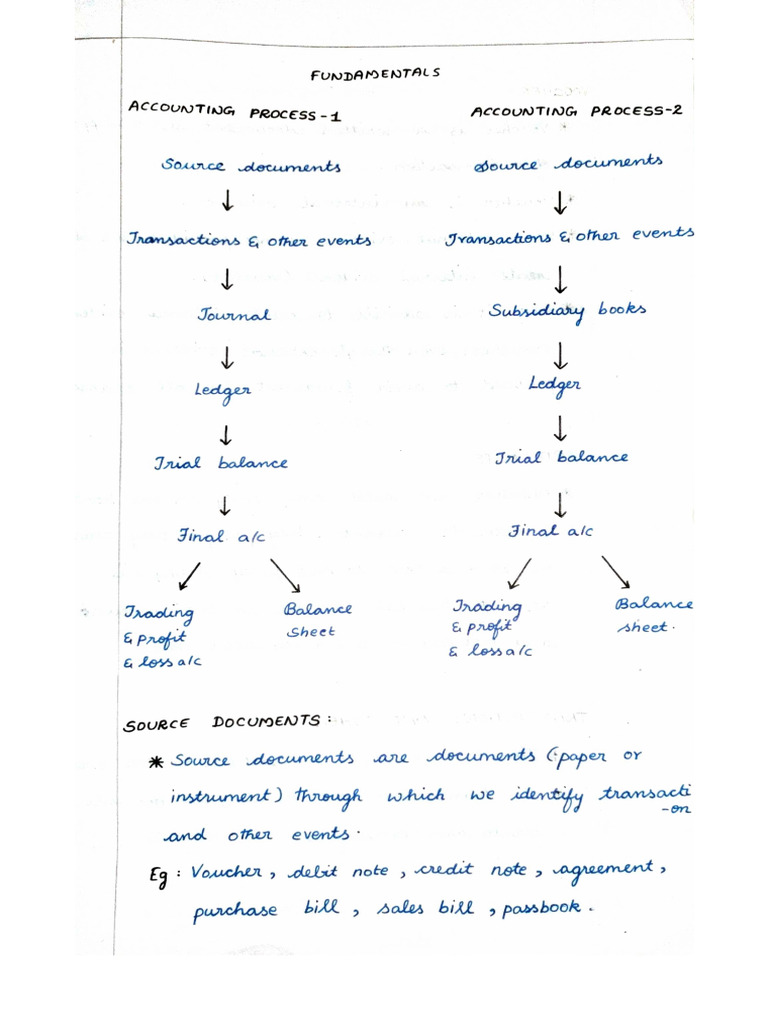 FUNDAMENTALS
ACCOUNTING PROCESS-1
Source documents
↓
Transactions & other events
↓
Journal
↓
Ledger
↓
Trial balance
↓
Final a/c
Trading
& profit
& loss a/c
Balance
sheet
ACCOUNTING PROCESS-2
Source documents
↓
Transactions & other events
↓
Subsidiary books
↓
Ledger
↓
Trial balance
↓
Final a/c
Trading
& profit
& loss a/c
Balance
sheet.
SOURCE DOCUMENTS:
* Source documents are documents (paper or
instrument) through which we identify transacti
-on
and other events.
Eg : Voucher, debit note, credit note, agreement,
purchase bill, sales bill, passbook.